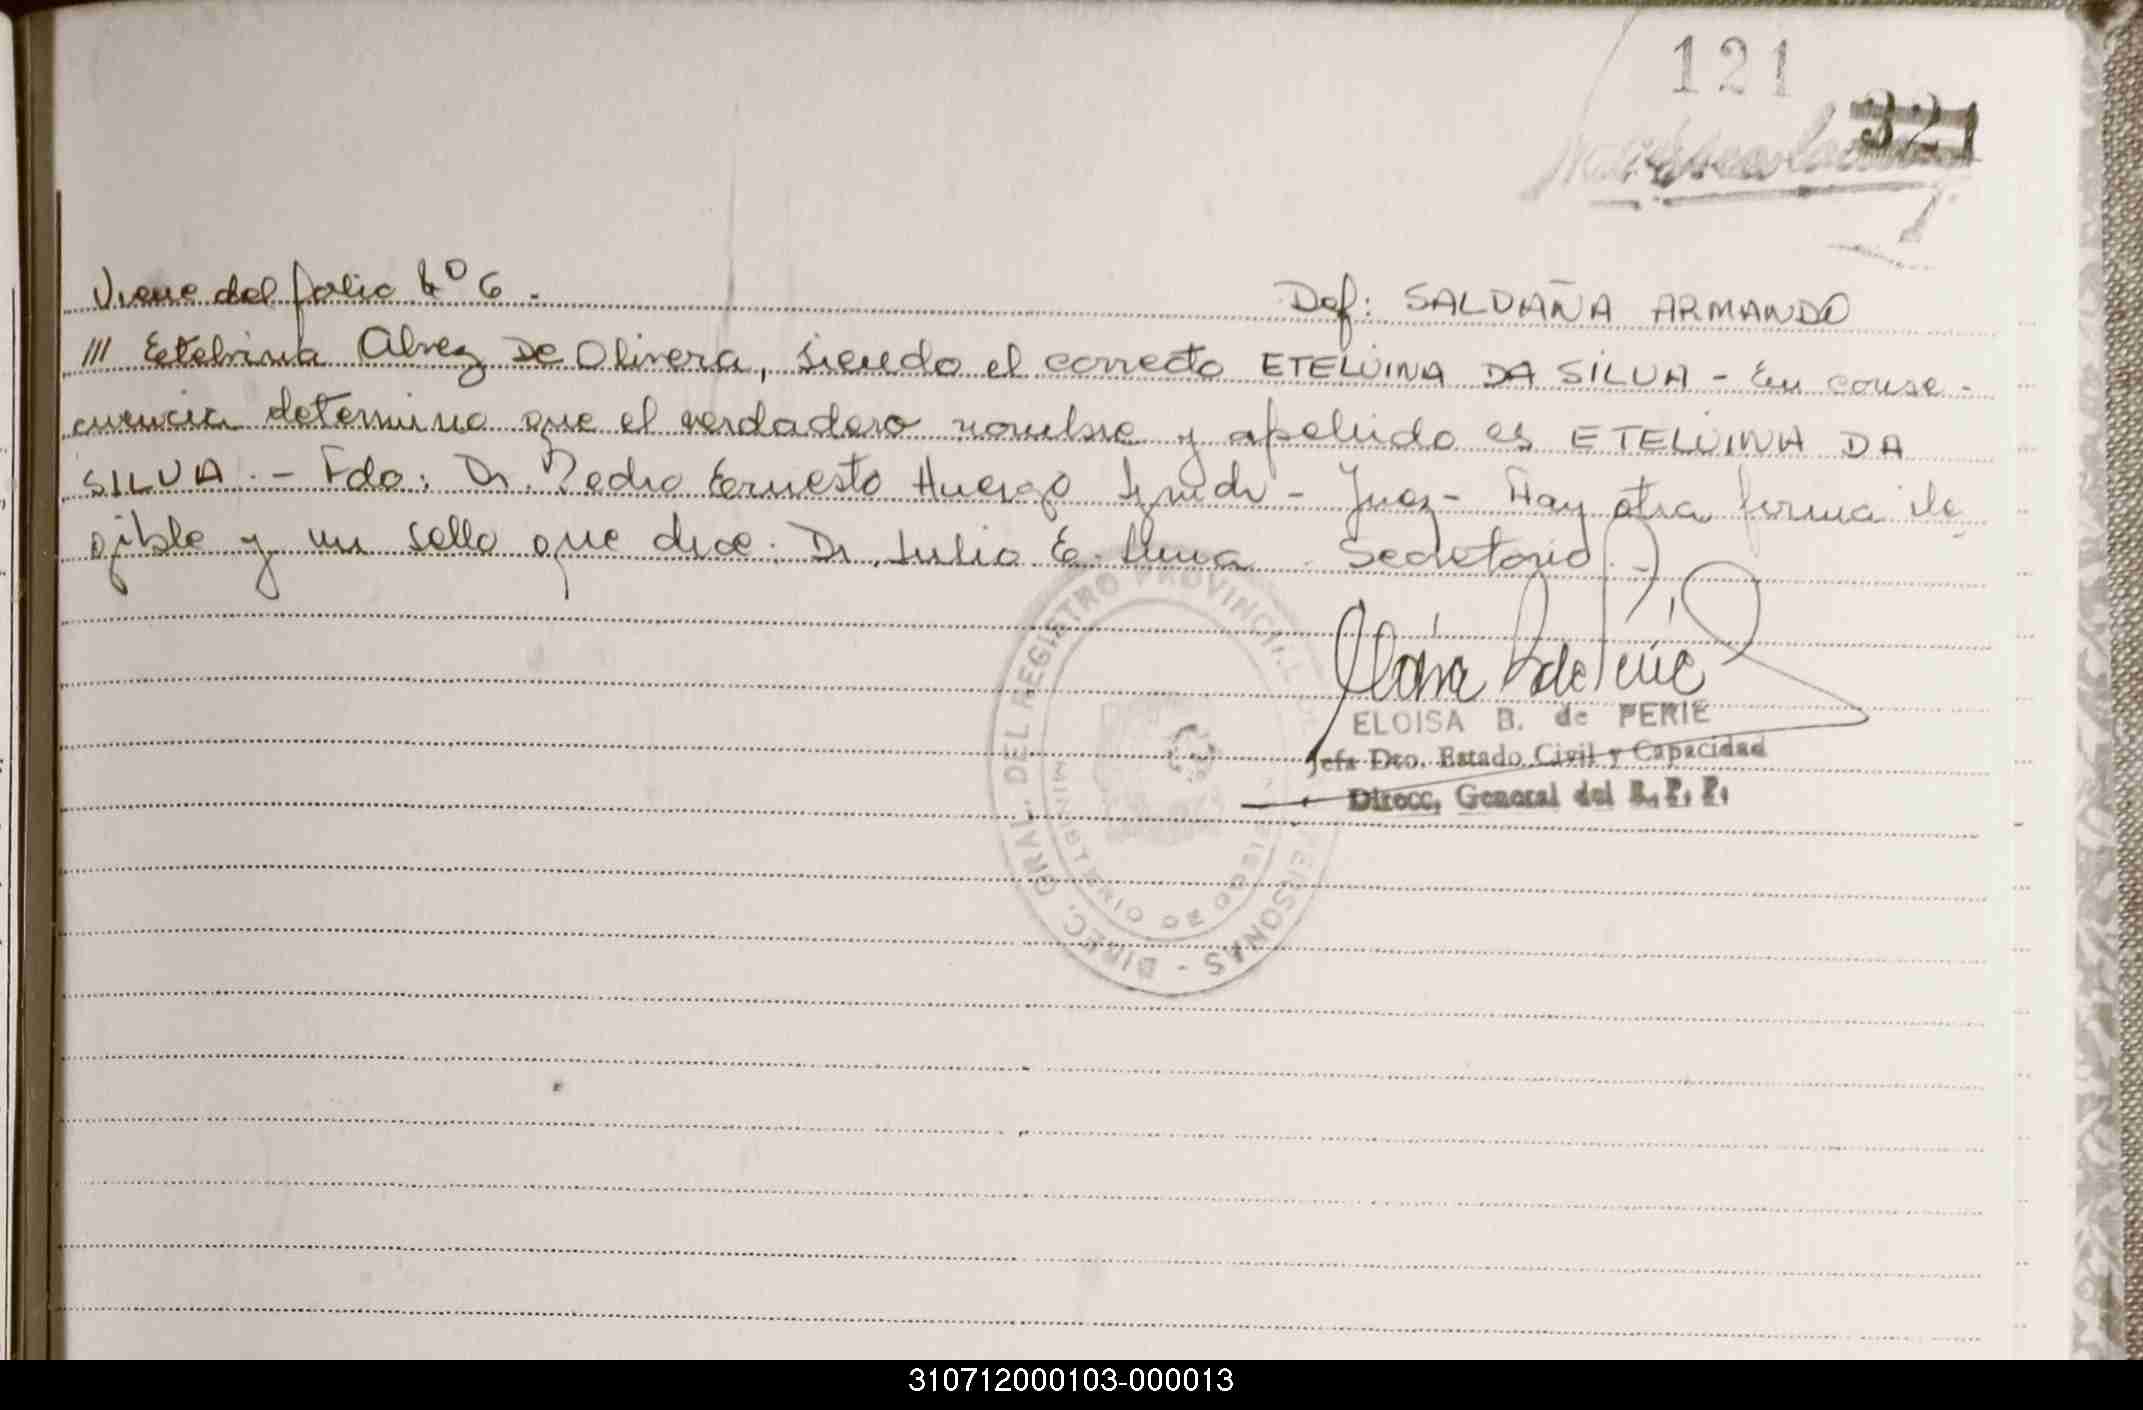 121
321
Viene del folio Nº 6.- Def: SALDAÑA ARMANDO
/// Etelvina Alvez De Olivera, siendo el correcto ETELVINA DA SILVA - En conse-
cuencia determino que el verdadero nombre y apellido es ETELVINA DA
SILVA.- Fdo: Dr. Pedro Ernesto Huergo - Juez - Hay otra firma ile-
gible y un sello que dice: Dr. Julio E. Secretario.-
ELOISA B. de PERIE
Jefa Dto. Estado Civil y Capacidad
Direcc. General del R. P. P.
DIREC. GRAL. DEL REGISTRO PROVINCIAL PERSONAS -
MINISTERIO DE GOBIERNO
310712000103-000013